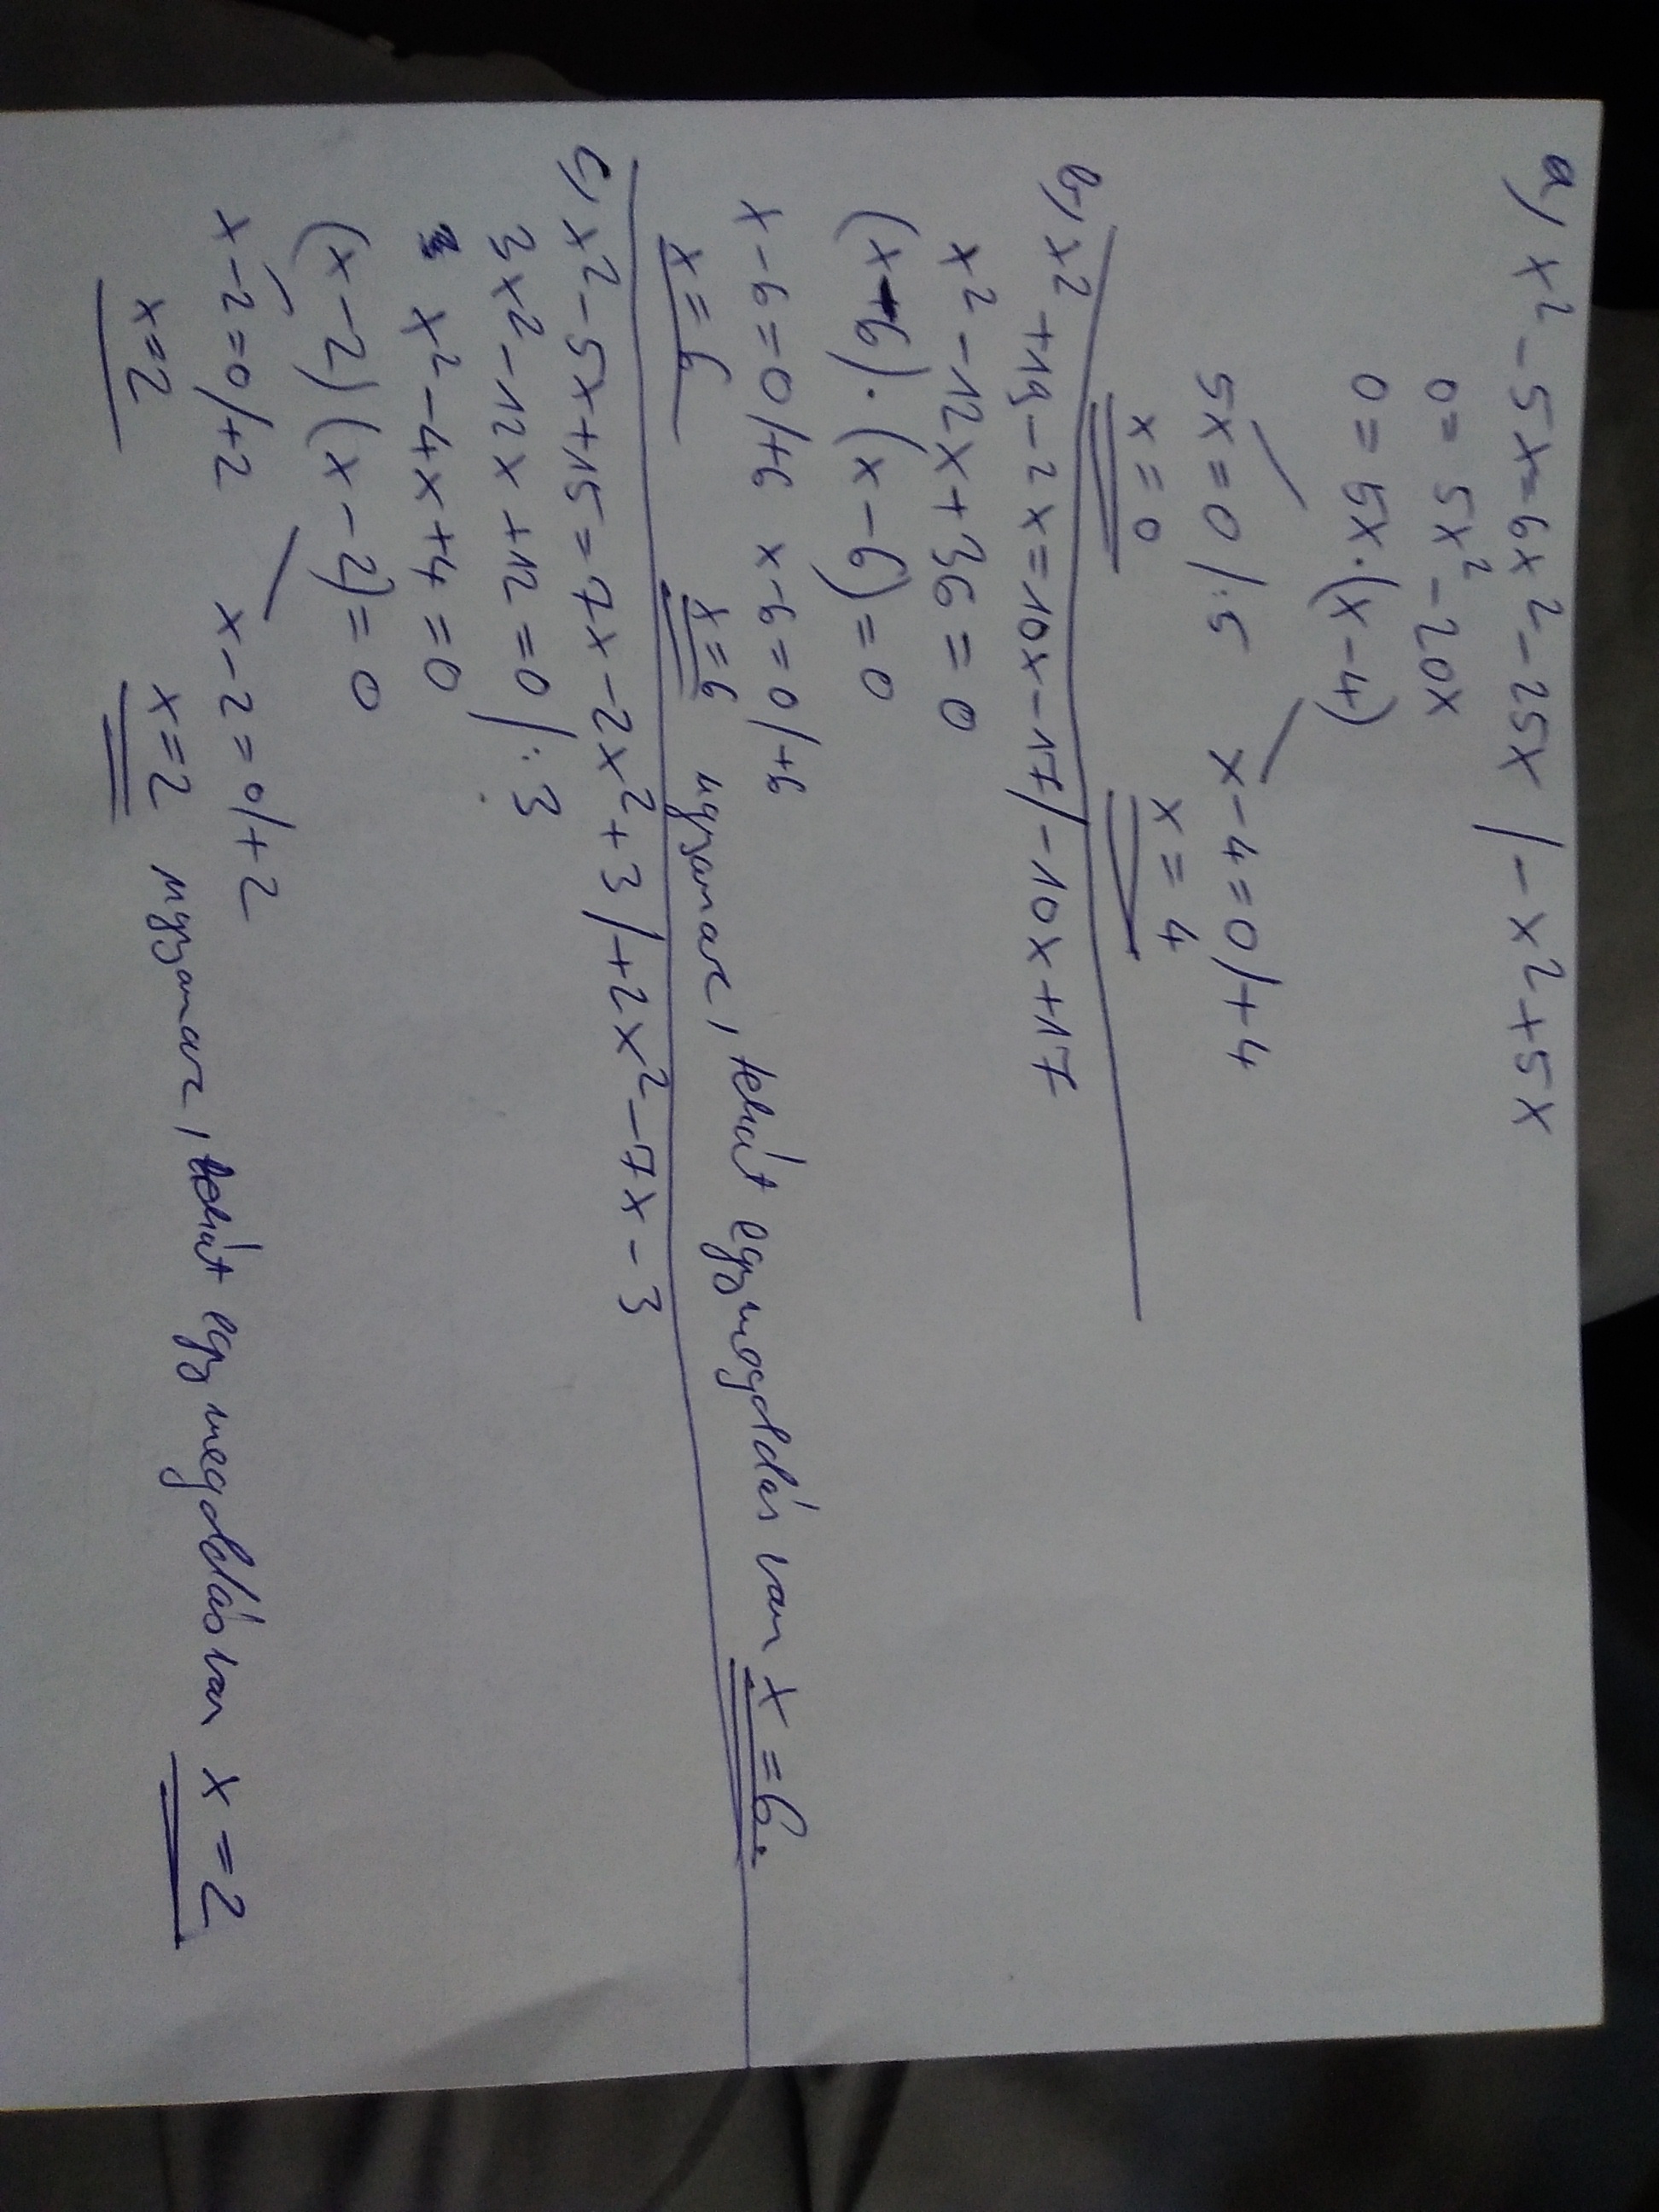 a, x² - 5x = 6x² - 25x / - x² + 5x
0 = 5x² - 20x
0 = 5x · (x - 4)
5x = 0 / :5 x - 4 = 0 / + 4
x = 0 x = 4
b, x² + 19 - 2x = 10x - 17 / - 10x + 17
x² - 12x + 36 = 0
(x - 6) · (x - 6) = 0
x - 6 = 0 / +6 x - 6 = 0 / +6
x = 6 x = 6 ugyanaz, tehát egy megoldás van x = 6.
c, x² - 5x + 15 = 7x - 2x² + 3 / + 2x² - 7x - 3
3x² - 12x + 12 = 0 / : 3
x² - 4x + 4 = 0
(x - 2) (x - 2) = 0
x - 2 = 0 / + 2 x - 2 = 0 / + 2
x = 2 x = 2 ugyanaz, tehát egy megoldás van x = 2